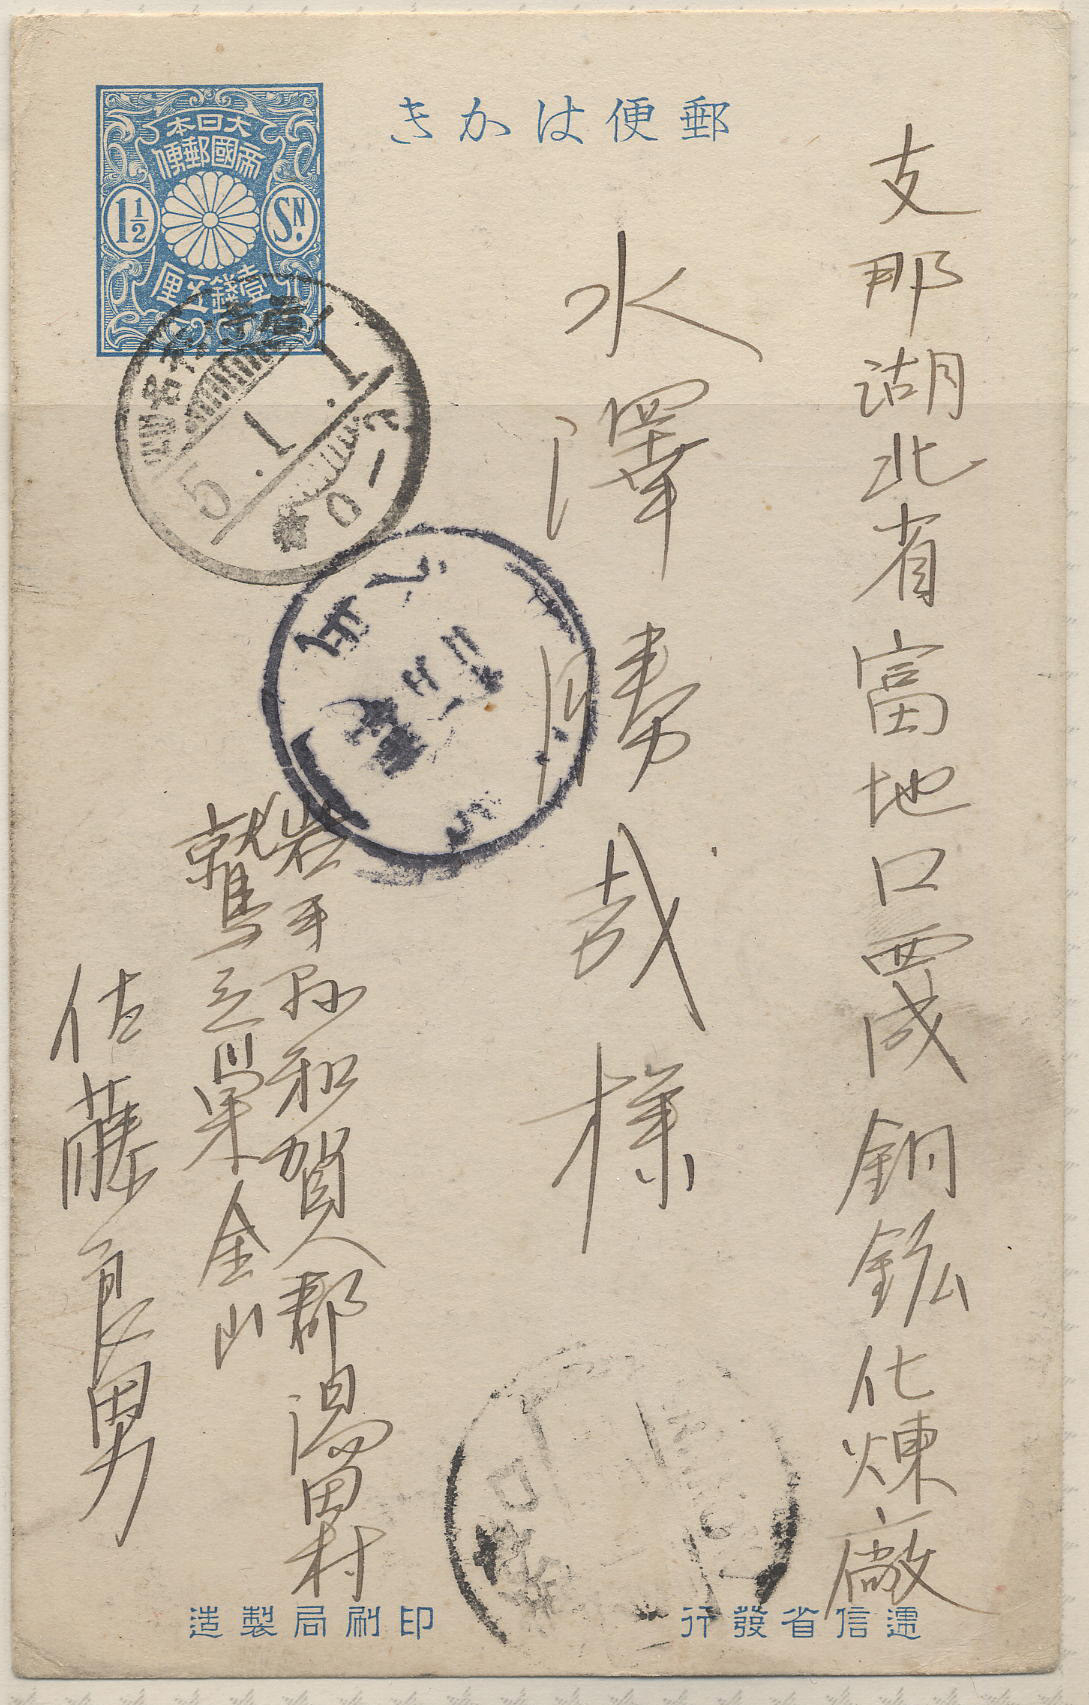 郵便はかき
大日本
帝國郵便
1½ SN.
壹錢五厘
5.1.1
支那湖北省富地口覀成銅鉱化煉廠
水澤勝哉様
岩手縣和賀郡湯田村
鷲之巣金山
佐藤良男
逓信省發行
印刷局製造